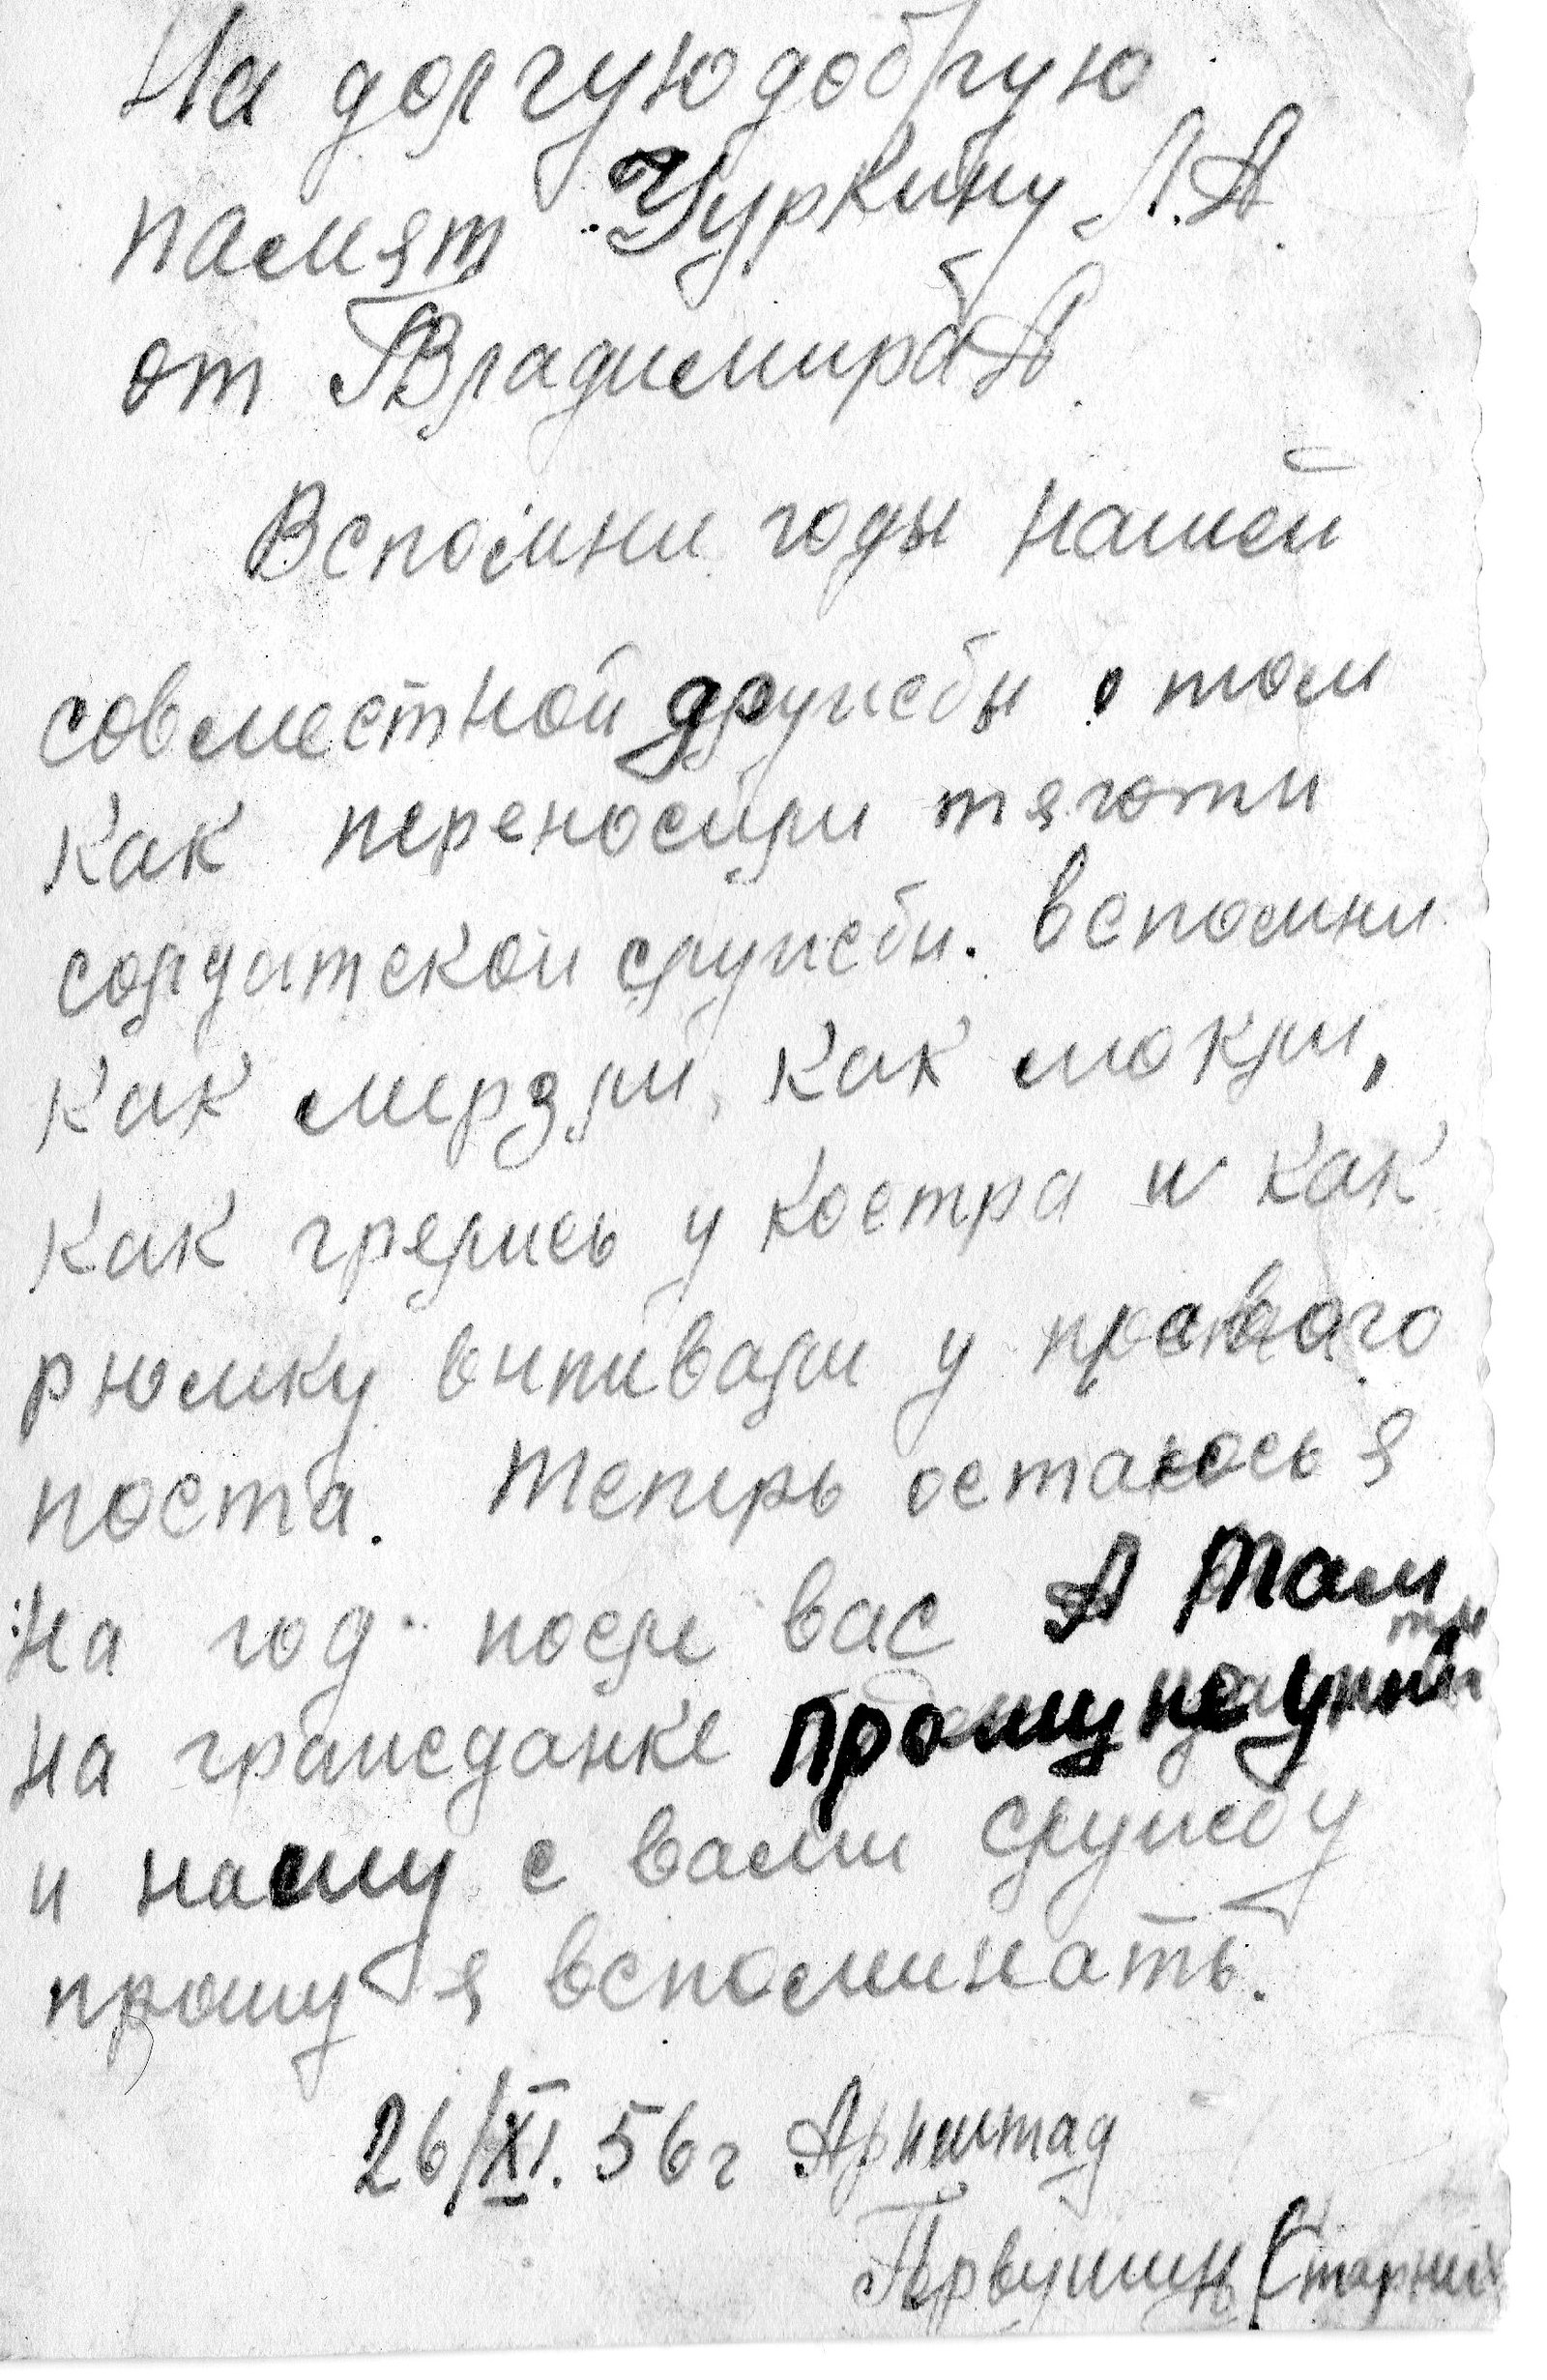 На долгую добрую
памят Чуркину Л.А.
от Владимира А.
Вспомни годы нашей
совместной дружбы о том
как переносили тяготы
солдатской службы. Вспомни
как мерзли, как мокли,
как грелись у костра и как
рюмку выпивали у правого
поста. Теперь остаюсь я
на год после вас А там
на гражданке прошу не
и нашу с вами службу
прошу я вспоминать.
26/XI. 56 г Арнштад
Первушин (Старший